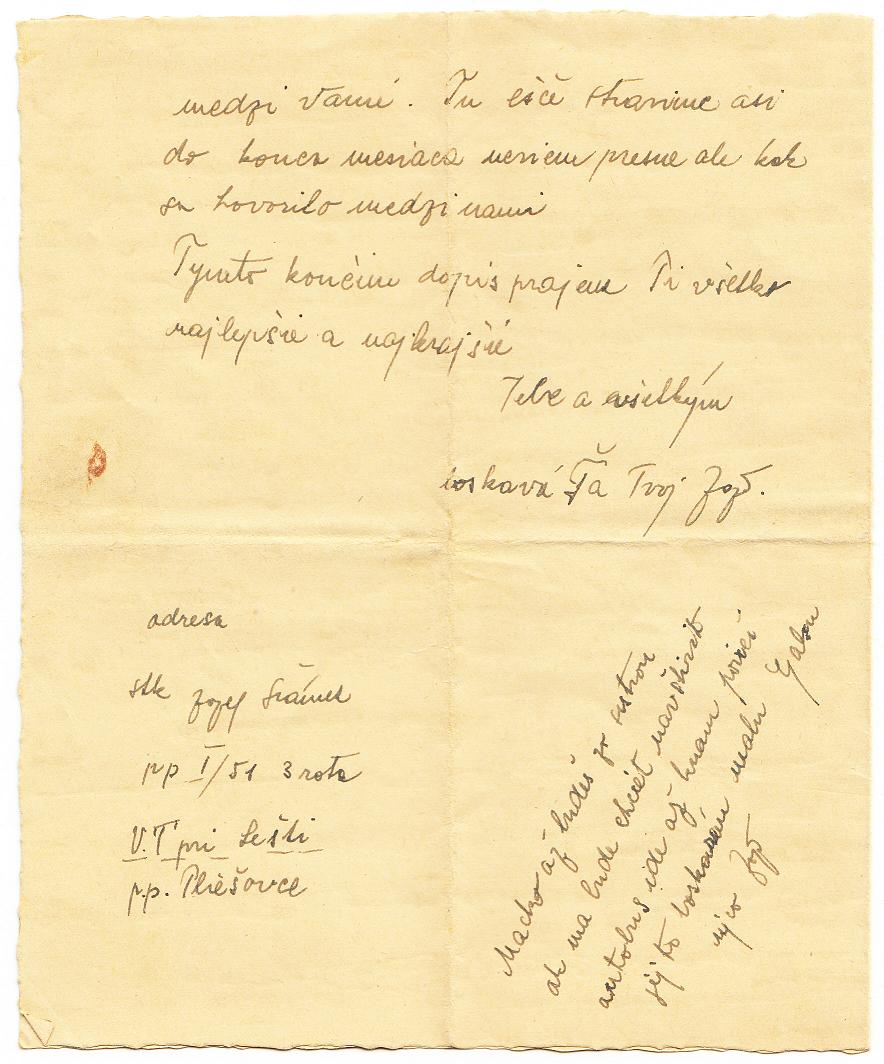 medzi Vami. Tu ešče stravime asi
do konca mesiaca neviem presne ale tak
sa hovorilo medzi nami
Tymto končim dopis prajem Ti všetko
najlepšie a najkrajšie
Tebe a všetkým
boskavá Ťa Tvoj Jozo.
adresa
stk Jozef
pp I/51 3 rota
V.T pri Lešti
p.p. Pliešovce
Macko až budeš zo sestrou
ak ma bude chcieť navštiviť
autobus ide až knam povieš
jej to boskávam malu Gabu
Jozo